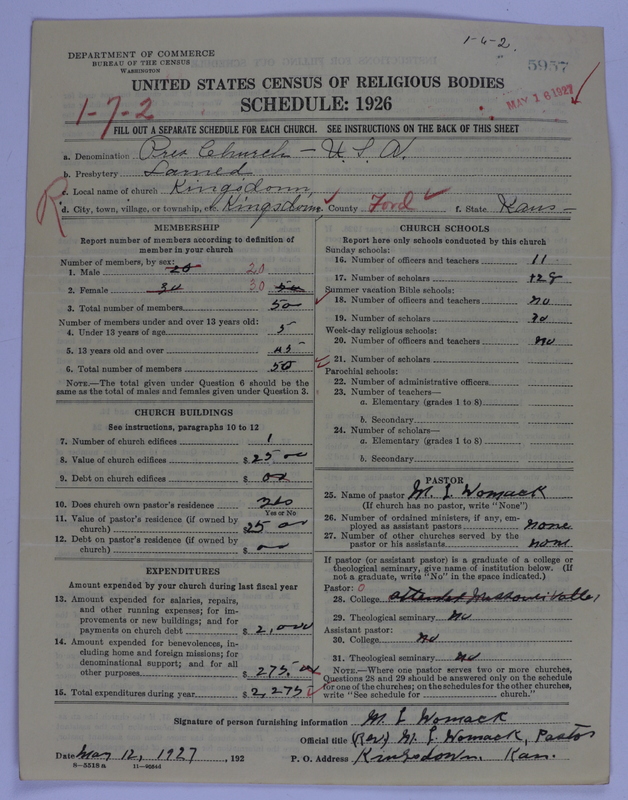 1-6-2.
DEPARTMENT OF COMMERCE
BUREAU OF THE CENSUS
WASHINGTON
5957
UNITED STATES CENSUS OF RELIGIOUS BODIES
SCHEDULE: 1926
MAY 16 1927
1-7-2
FILL OUT A SEPARATE SCHEDULE FOR EACH CHURCH. SEE INSTRUCTIONS ON THE BACK OF THIS SHEET
a. Denomination Pres Church - U. S. A.
b. Presbytery Larned
c. Local name of church Kingsdown
R
d. City, town, village, or township, etc. Kingsdown e. County Ford f. State Kans
MEMBERSHIP
Report number of members according to definition of
member in your church
Number of members, by sex:
1. Male 20 20
2. Female 30 30 50
3. Total number of members 50
Number of members under and over 13 years old:
4. Under 13 years of age 5
5. 13 years old and over 45
6. Total number of members 50
NOTE.—The total given under Question 6 should be the
same as the total of males and females given under Question 3.
CHURCH BUILDINGS
See instructions, paragraphs 10 to 12
7. Number of church edifices 1
8. Value of church edifices $ 25 00
9. Debt on church edifices $ 00
10. Does church own pastor's residence yes
Yes or No
11. Value of pastor's residence (if owned by
church) $ 25 00
12. Debt on pastor's residence (if owned by
church) $ 00
EXPENDITURES
Amount expended by your church during last fiscal year
13. Amount expended for salaries, repairs,
and other running expenses; for im-
provements or new buildings; and for
payments on church debt $ 2,000
14. Amount expended for benevolences, in-
cluding home and foreign missions; for
denominational support; and for all
other purposes $ 275.00
15. Total expenditures during year $ 2,275
CHURCH SCHOOLS
Report here only schools conducted by this church
Sunday schools:
16. Number of officers and teachers 11
17. Number of scholars 128
Summer vacation Bible schools:
18. Number of officers and teachers no
19. Number of scholars no
Week-day religious schools:
20. Number of officers and teachers no
21. Number of scholars
Parochial schools:
22. Number of administrative officers
23. Number of teachers—
a. Elementary (grades 1 to 8)
b. Secondary
24. Number of scholars—
a. Elementary (grades 1 to 8)
b. Secondary
PASTOR
25. Name of pastor M. L. Womack
(If church has no pastor, write "None")
26. Number of ordained ministers, if any, em-
ployed as assistant pastors none
27. Number of other churches served by the
pastor or his assistants none
If pastor (or assistant pastor) is a graduate of a college or
theological seminary, give name of institution below. (If
not a graduate, write "No" in the space indicated.)
Pastor: 0
28. College attended Missouri Valley
29. Theological seminary No
Assistant pastor:
30. College No
31. Theological seminary No
NOTE.—Where one pastor serves two or more churches,
Questions 28 and 29 should be answered only on the schedule
for one of the churches; on the schedules for the other churches,
write "See schedule for church."
Signature of person furnishing information M L Womack
Official title (Rev) M. L. Womack, Pastor
Date May 12, 1927, 192 P. O. Address Kingsdown, Kan.
8—5518 a 11—9584d